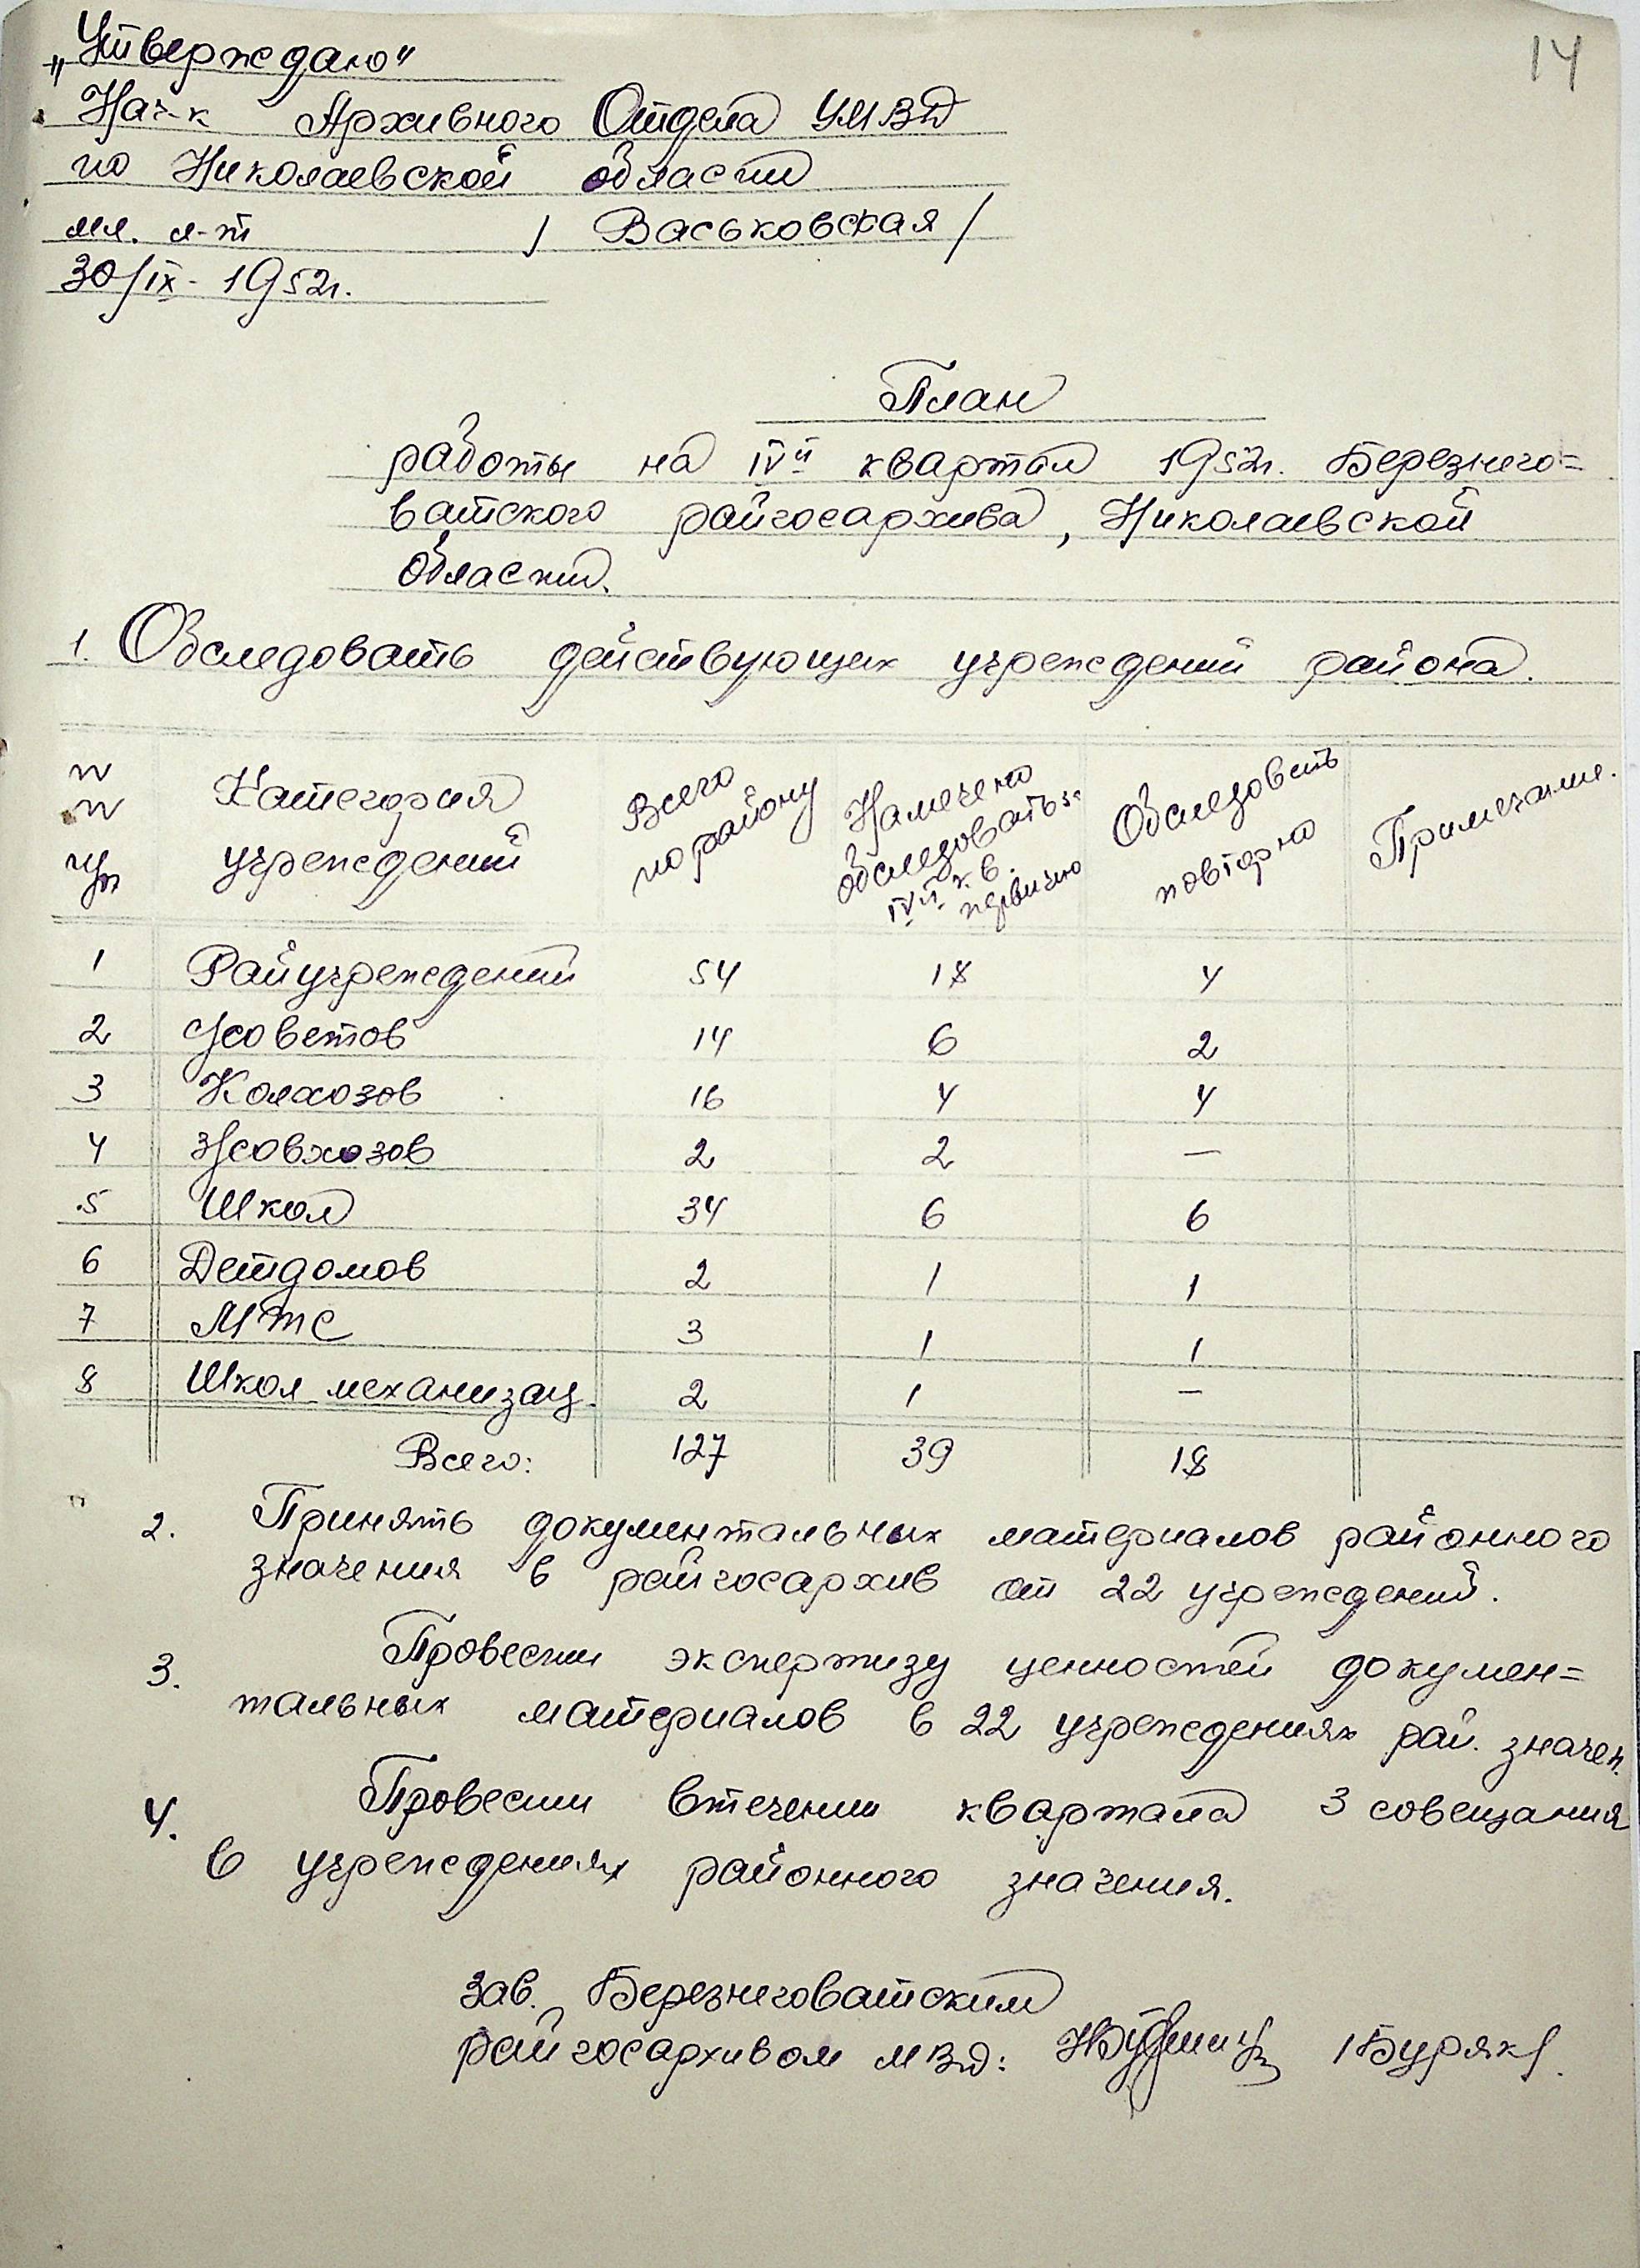 14
„Утверждаю"
Нач-к Архивного Отдела УМВД
по Николаевской области
мл. л-т / Васьковская /
30/IX - 1952г.
План
работы на IVй квартал 1952г. Березнего=
ватского райгосархива, Николаевской
области.
1. Обследовать действующих учреждений района.
№ № п/п | Категория учреждений | Всего по району | Намечено обследовать в IVй кв. первично | Обследовать повторно | Примечание.
1 Райучреждений 54 18 4
2 С/советов 14 6 2
3 Колхозов 16 4 4
4 З/совхозов 2 2 —
5 Школ 34 6 6
6 Детдомов 2 1 1
7 МТС 3 1 1
8 Школ механизац. 2 1 —
Всего: 127 39 18
2. Принять документальных материалов районного
значения в райгосархив от 22 учреждений.
3. Провести экспертизу ценностей докумен=
тальных материалов в 22 учреждениях рай. значен.
4. Провести втечении квартала 3 совещания
в учреждениях районного значения.
Зав. Березнеговатским
райгосархивом МВД: /Буряк/.